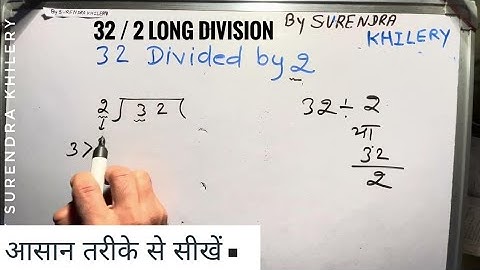 By SURENDRA KHILERY
32 / 2 LONG DIVISION
By SURENDRA
KHILERY
32 Divided by 2
SURENDRA KHILERY
2 ) 3 2 (
3 >
32 ÷ 2
या
32
2
आसान तरीके से सीखें